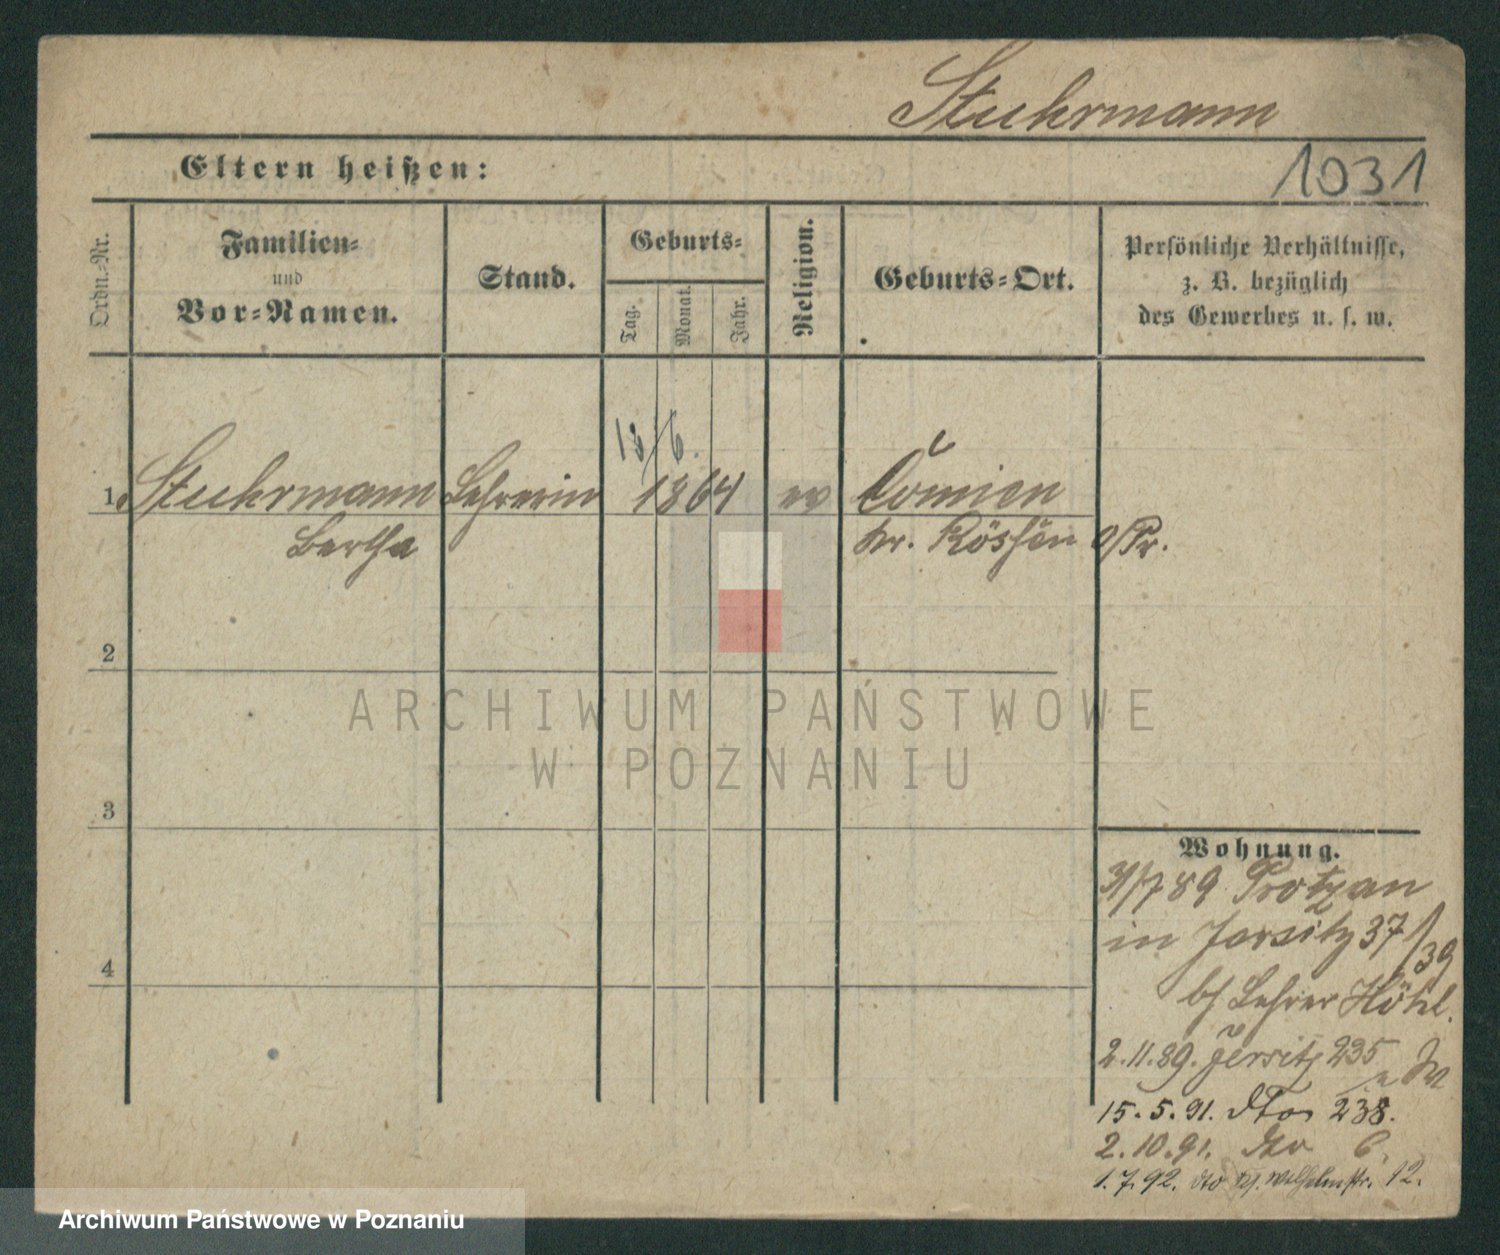 Stuhrmann
Eltern heißen:
1031
Ordn.-Nr.
Familien-
und
Vor-Namen.
Stand.
Geburts-
Tag.
Monat.
Jahr.
Religion.
Geburts-Ort.
Persönliche Verhältnisse,
z. B. bezüglich
des Gewerbes u. s. w.
6.
1. Stuhrmann Lehrerin 1864 ev Comien
Bertha Kr. Röshßen O/Pr.
2
3
4
Wohnung.
31/7 89 Protzan
in Jersitz 37/39
bei Lehrer
2.11.89. Jersitz 235
15.5.91. dto 238.
2.10.91. dto 6.
1.7.92. dto Wilhelmstr. 12.
ARCHIWUM PAŃSTWOWE
W POZNANIU
Archiwum Państwowe w Poznaniu